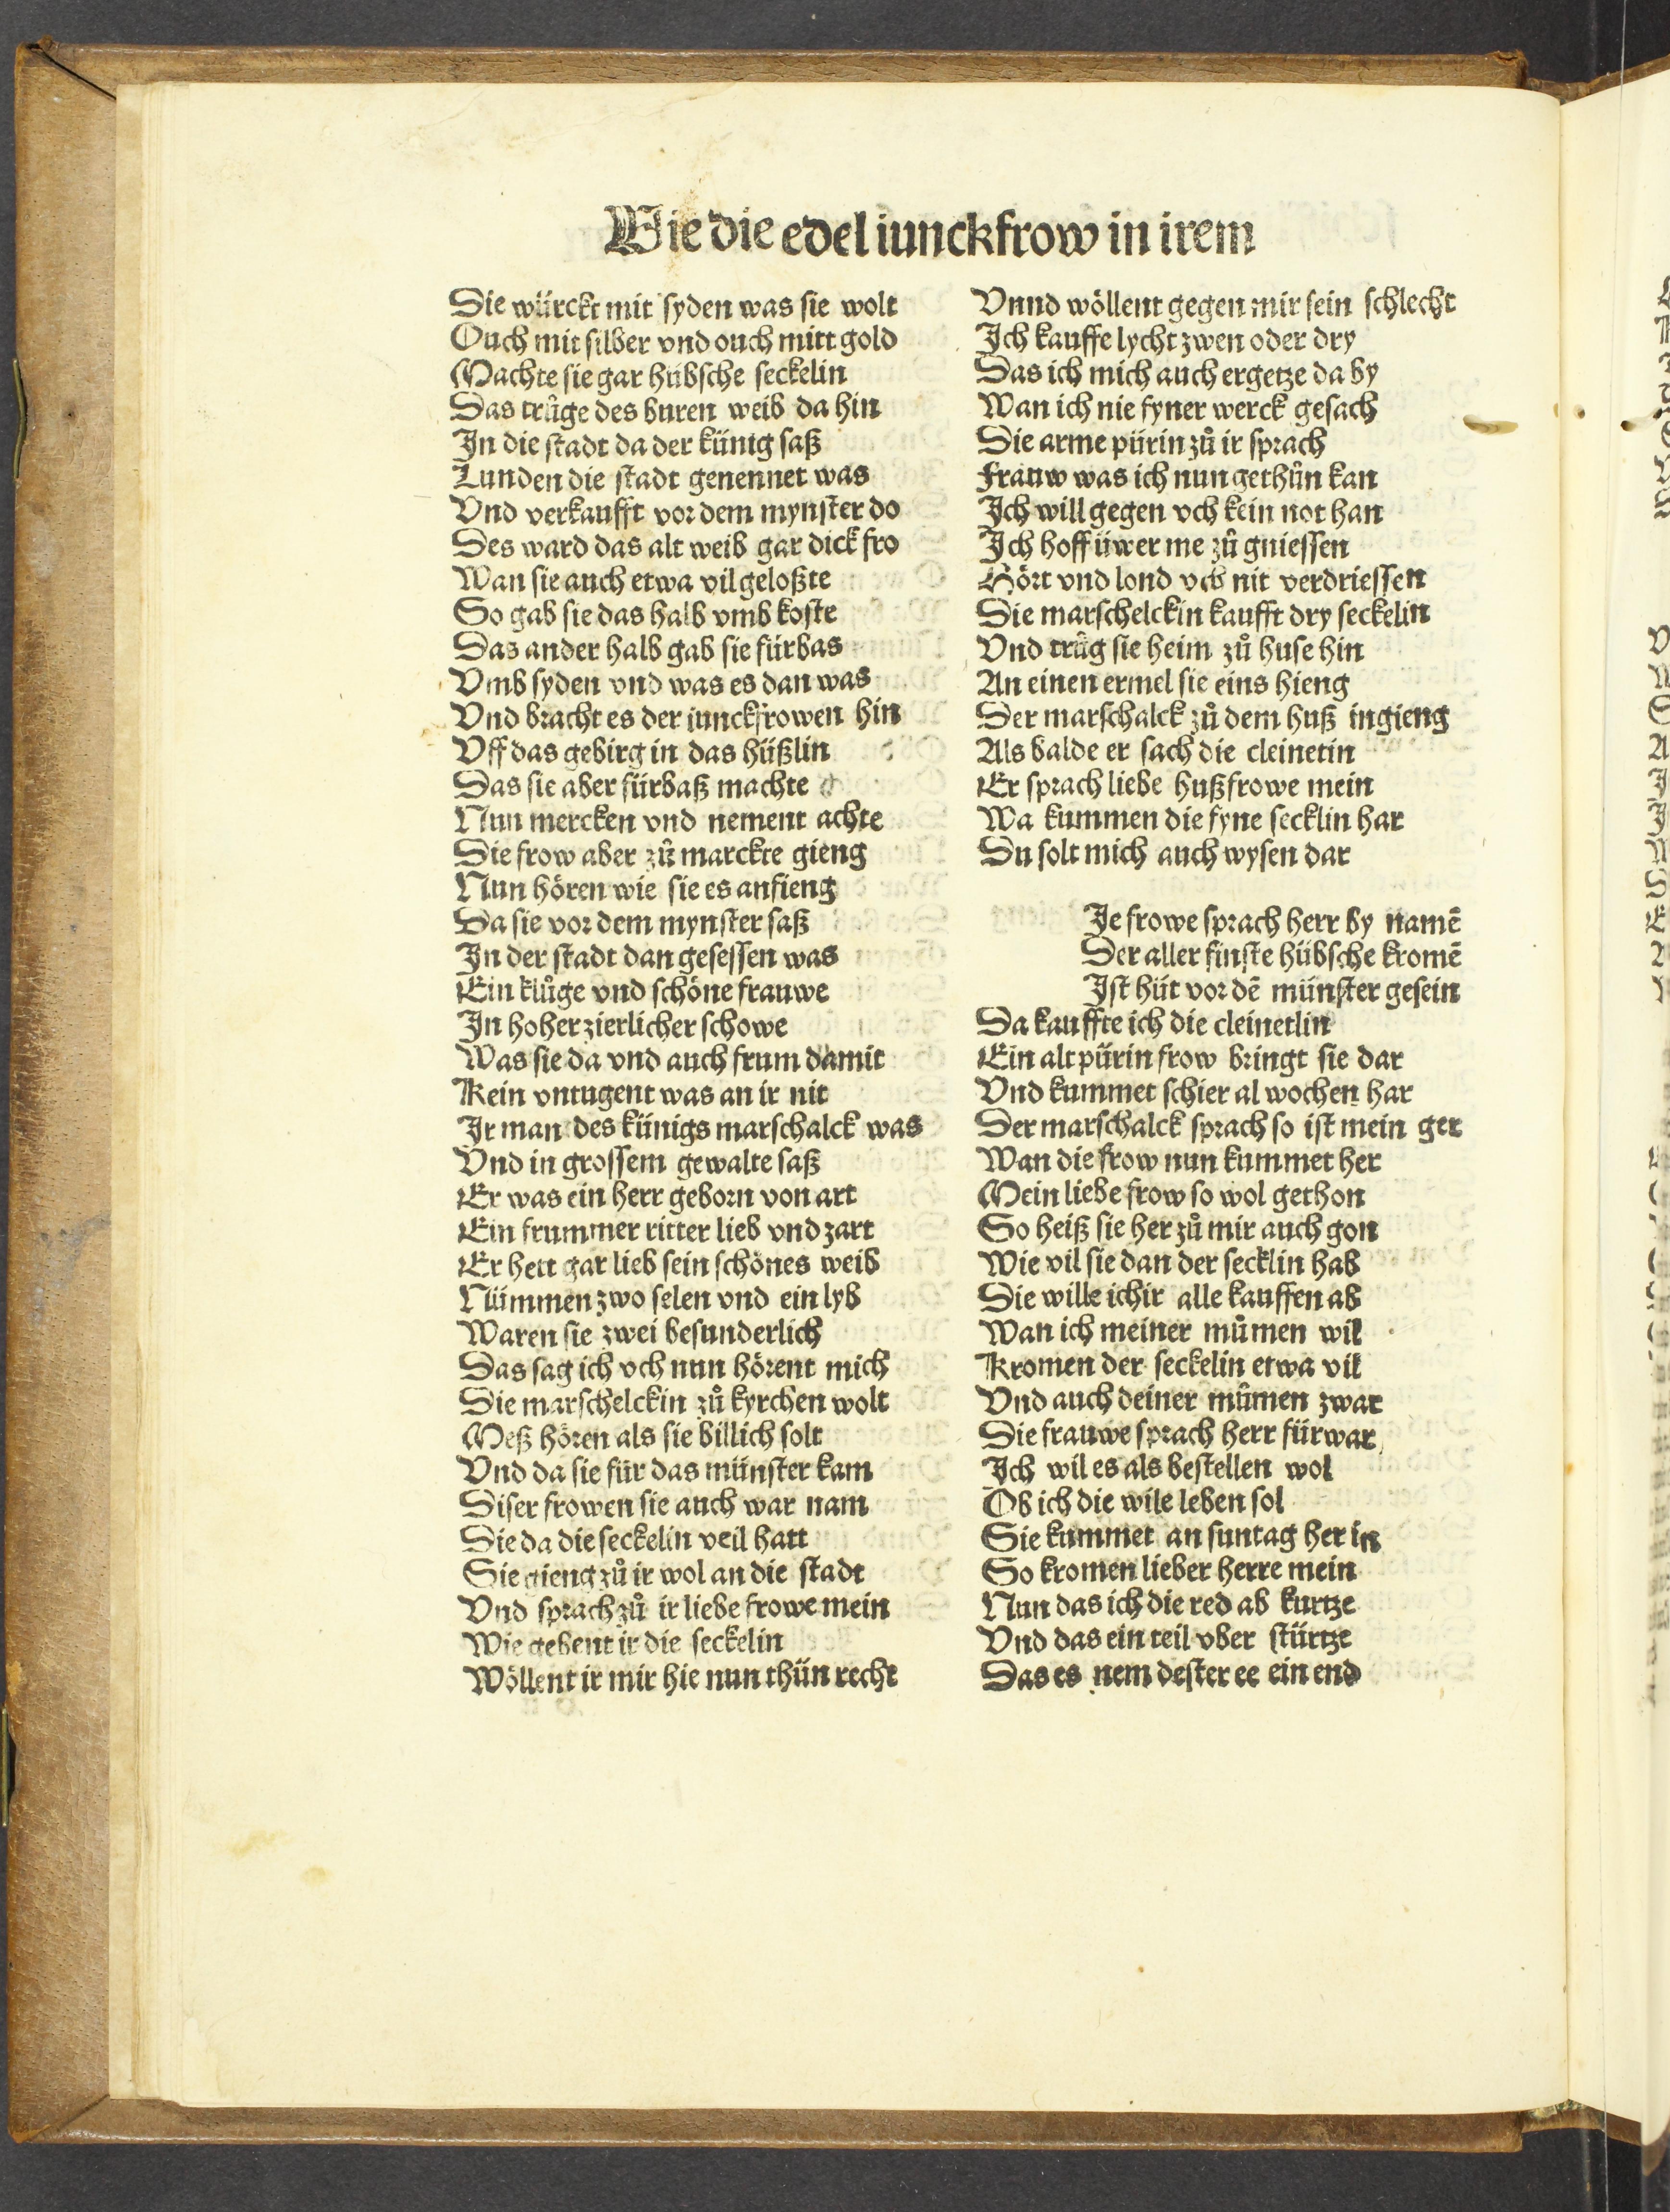 Wie die edel iunckfrow in irem
Die würckt mit syden was sie wolt
Ouch mit silber vnd ouch mitt gold
Machte sie gar hübsche seckelin
Das trůge des buren weib da hin
In die stadt da der künig saß
Lunden die stadt genennet was
Vnd verkaufft vor dem mynster do
Des ward das alt weib gar dick fro
Wan sie auch etwa vil geloßte
So gab sie das halb vmb koste
Das ander halb gab sie fürbas
Vmb syden vnd was es dan was
Vnd bracht es der iunckfrowen hin
Vff das gebirg in das hüßlin
Das sie aber fürbaß machte
Nun mercken vnd nement achte
Die frow aber zů marckte gieng
Nun hören wie sie es anfieng
Da sie vor dem mynster saß
In der stadt dan gesessen was
Ein klůge vnd schöne frauwe
In hoher zierlicher schowe
Was sie da vnd auch frum damit
Kein vntugent was an ir nit
Ir man des künigs marschalck was
Vnd in grossem gewalte saß
Er was ein herr geborn von art
Ein frummer ritter lieb vnd zart
Er hett gar lieb sein schönes weib
Nümmen zwo selen vnd ein lyb
Waren sie zwei besunderlich
Das sag ich vch nun hörent mich
Die marschelckin zů kyrchen wolt
Meß hören als sie billich solt
Vnd da sie für das münster kam
Diser frowen sie auch war nam
Die da die seckelin veil hatt
Sie gieng zů ir wol an die stadt
Vnd sprach zů ir liebe frowe mein
Wie gebent ir die seckelin
Wöllent ir mir hie nun thůn recht
Vnnd wöllent gegen mir sein schlecht
Ich kauffe lycht zwen oder dry
Das ich mich auch ergetze da by
Wan ich nie fyner werck gesach
Die arme pürin zů ir sprach
Frauw was ich nun gethůn kan
Ich will gegen vch kein not han
Ich hoff üwer me zů gniessen
Hört vnd lond vch nit verdriessen
Die marschelckin kaufft dry seckelin
Vnd trůg sie heim zů huse hin
An einen ermel sie eins hieng
Der marschalck zů dem huß ingieng
Als balde er sach die cleinetin
Er sprach liebe hußfrowe mein
Wa kummen die fyne secklin har
Du solt mich auch wysen dar
Ie frowe sprach herr by namē
Der aller finste hübsche kromē
Ist hüt vor dē münster gesein
Da kauffte ich die cleinetlin
Ein alt pürin frow bringt sie dar
Vnd kummet schier al wochen har
Der marschalck sprach so ist mein ger
Wan die frow nun kummet her
Mein liebe frow so wol gethon
So heiß sie her zů mir auch gon
Wie vil sie dan der secklin hab
Die wille ich ir alle kauffen ab
Wan ich meiner můmen wil
Kromen der seckelin etwa vil
Vnd auch deiner můmen zwar
Die frauwe sprach herr fürwar
Ich wil es als bestellen wol
Ob ich die wile leben sol
Sie kummet an suntag her in
So kromen lieber herre mein
Nun das ich die red ab kurtze
Vnd das ein teil vber stürtze
Das es nem dester ee ein end